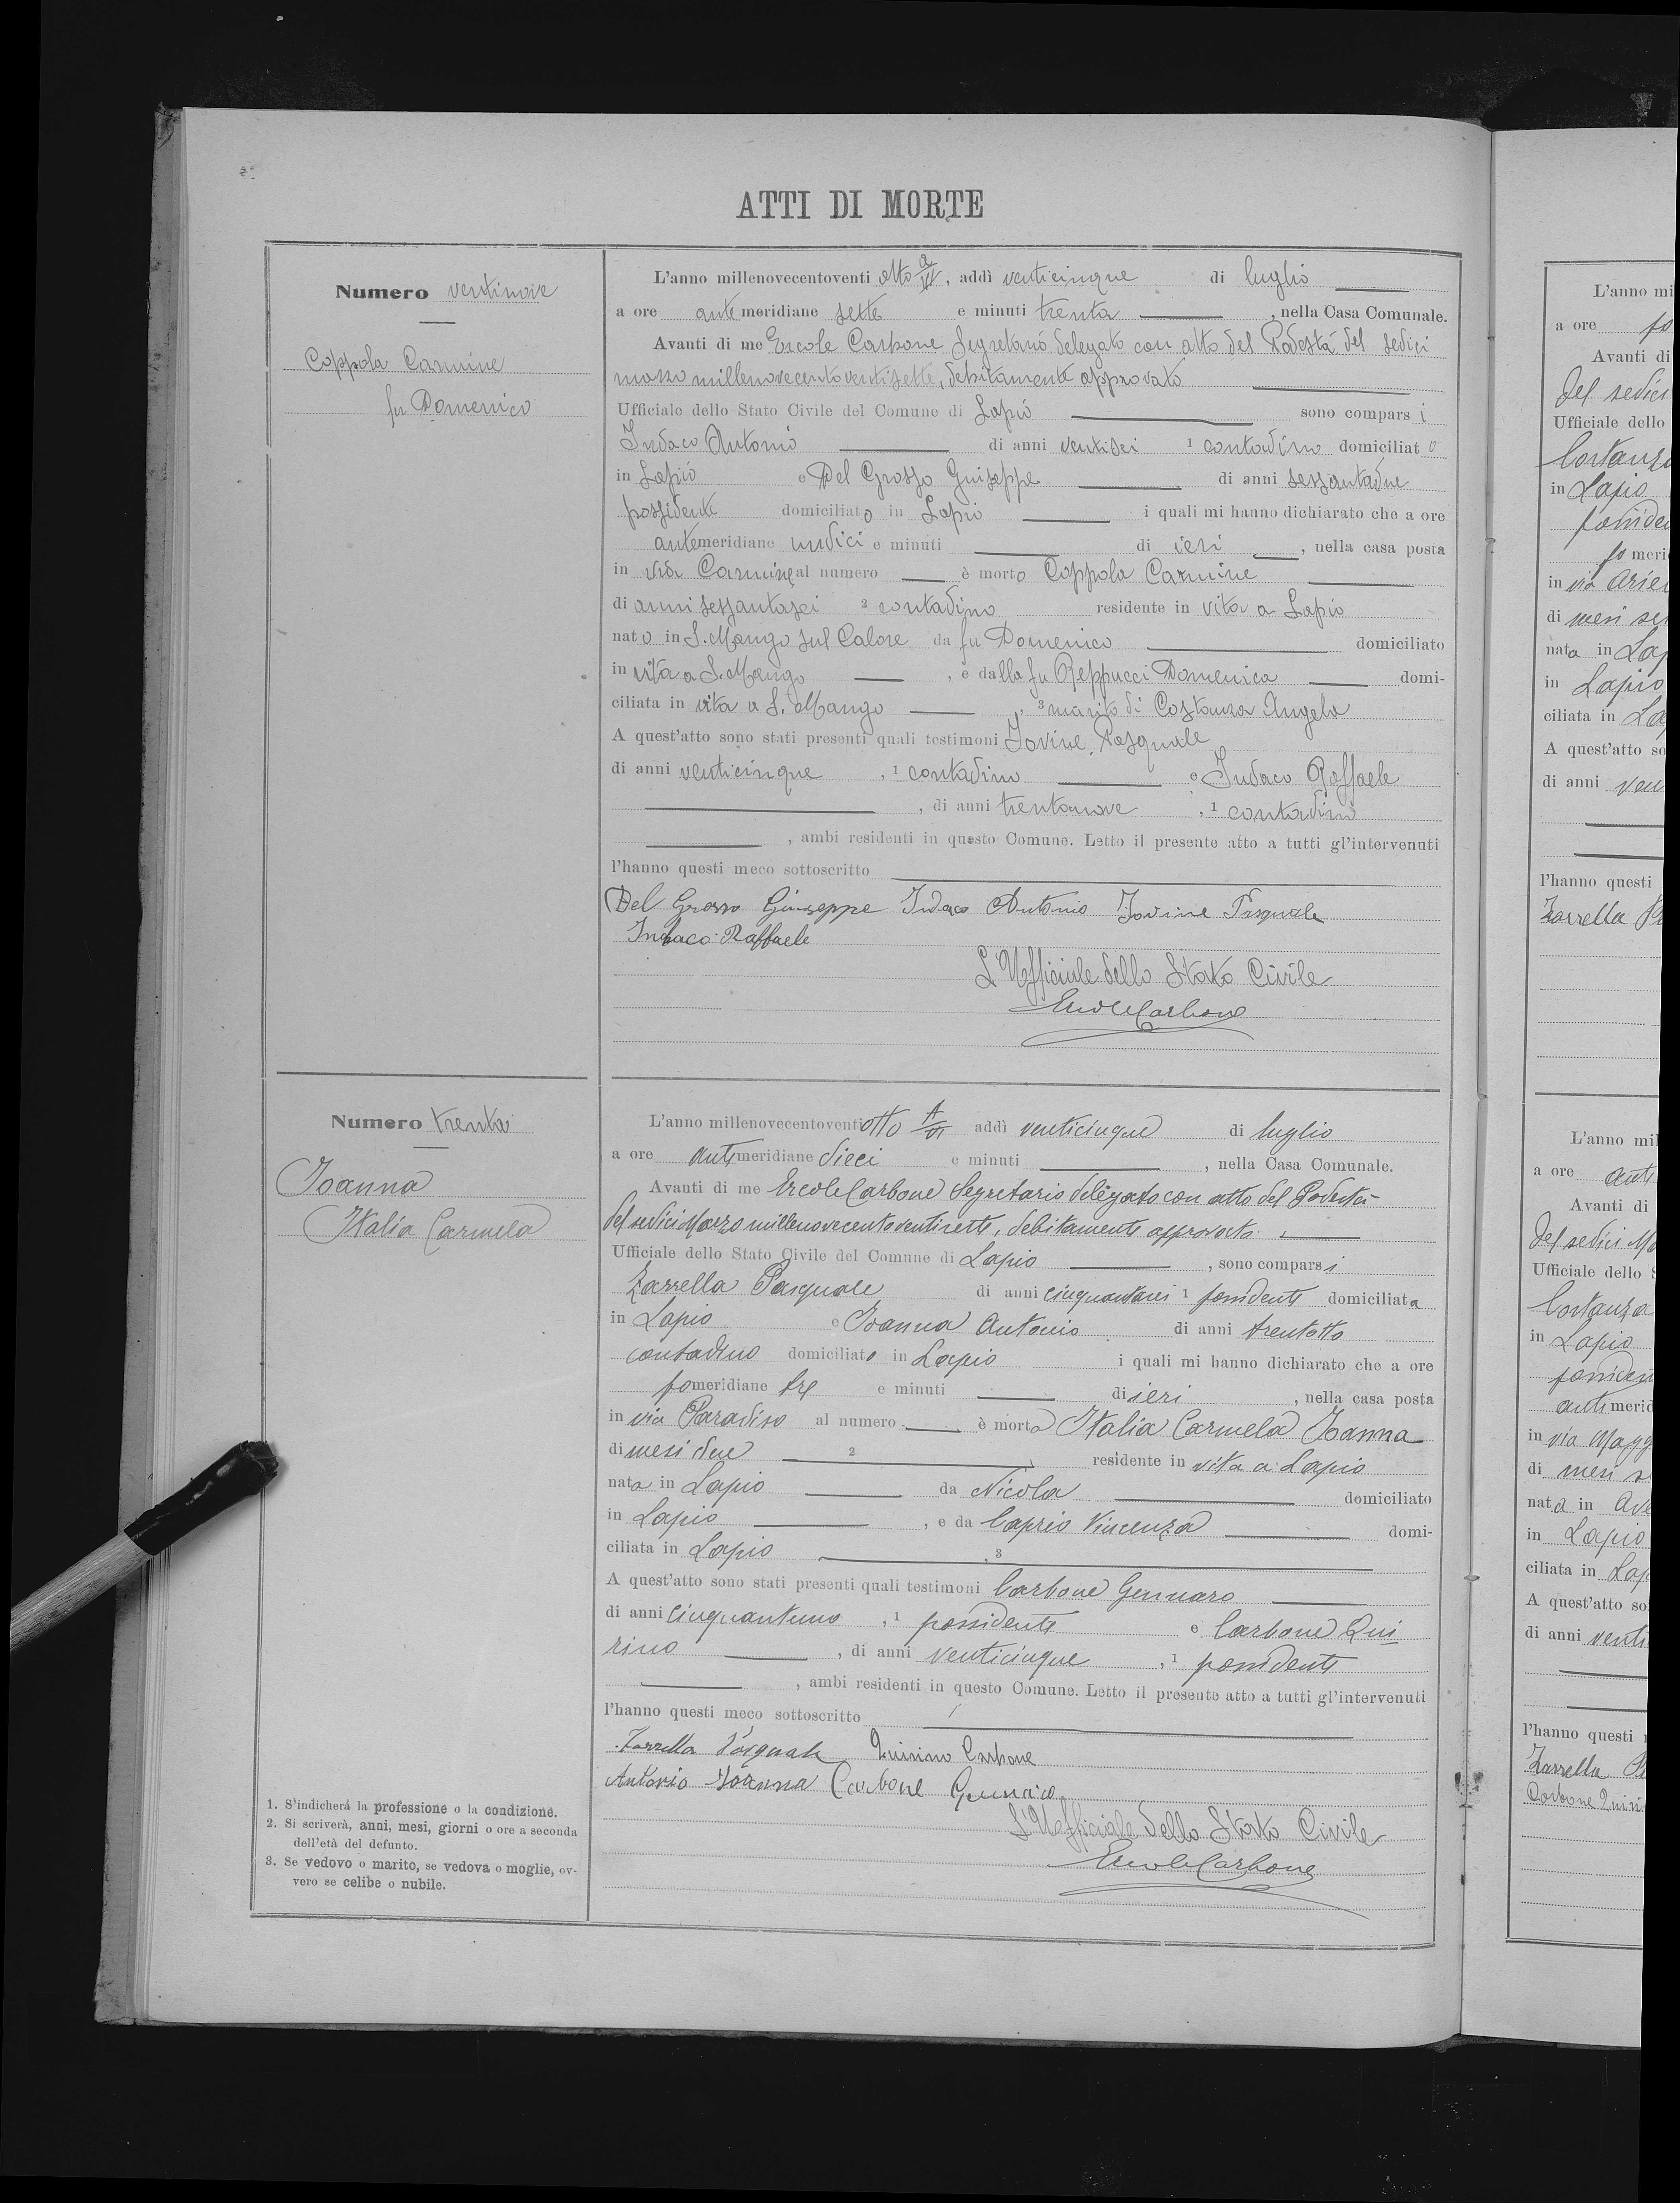 ATTI DI MORTE
Numero ventinove
Coppola Carmine
fu Domenico
L'anno millenovecentoventi otto A/VI, addì venticinque di luglio
a ore ante meridiane sette e minuti trenta, nella Casa Comunale.
Avanti di me Ercole Carbone Segretario delegato con atto del Podestà del sedici
marzo millenovecentoventisette, debitamente approvato
Ufficiale dello Stato Civile del Comune di Lapio sono compars i
Indaco Antonio di anni ventisei 1 contadino domiciliat o
in Lapio e Del Grosso Giuseppe di anni sessantadue
possidente domiciliato in Lapio i quali mi hanno dichiarato che a ore
antemeridiane undici e minuti di ieri, nella casa posta
in via Carmine al numero è morto Coppola Carmine
di anni sessantasei 2 contadino residente in vita a Lapio
nato in S. Mango sul Calore da fu Domenico domiciliato
in vita a S. Mango, e dalla fu Reppucci Domenica domi-
ciliata in vita a S. Mango, 3 marito di Costanza Angela
A quest'atto sono stati presenti quali testimoni Iovine Pasquale
di anni venticinque, 1 contadino e Indaco Raffaele
, di anni trentanove, 1 contadino
, ambi residenti in questo Comune. Letto il presente atto a tutti gl'intervenuti
l'hanno questi meco sottoscritto
Del Grosso Giuseppe Indaco Antonio Iovine Pasquale
Indaco Raffaele
L'Ufficiale dello Stato Civile
Ercole Carbone
Numero trenta
Ioanna
Italia Carmela
L'anno millenovecentoventi otto A/VI addì venticinque di luglio
a ore antimeridiane dieci e minuti, nella Casa Comunale.
Avanti di me Ercole Carbone Segretario delegato con atto del Podestà
del sedici Marzo millenovecentoventisette, debitamente approvato
Ufficiale dello Stato Civile del Comune di Lapio, sono comparsi
Zarrella Pasquale di anni cinquantasei 1 possidente domiciliata
in Lapio e Ioanna Antonio di anni trentotto
contadino domiciliato in Lapio i quali mi hanno dichiarato che a ore
pomeridiane tre e minuti di ieri, nella casa posta
in via Paradiso al numero è morta Italia Carmela Ioanna
di mesi due 2, residente in vita a Lapio
nata in Lapio da Nicola domiciliato
in Lapio, e da Caprio Vincenza domi-
ciliata in Lapio, 3
A quest'atto sono stati presenti quali testimoni Carbone Gennaro
di anni cinquantuno, 1 possidente e Carbone Qui
rino, di anni venticinque, 1 possidente
, ambi residenti in questo Comune. Letto il presente atto a tutti gl'intervenuti
l'hanno questi meco sottoscritto
Zarrella Pasquale Quirino Carbone
Antonio Ioanna Carbone Gennaro
L'Ufficiale dello Stato Civile
Ercole Carbone
1. S'indicherà la professione o la condizione.
2. Si scriverà, anni, mesi, giorni o ore a seconda
dell'età del defunto.
3. Se vedovo o marito, se vedova o moglie, ov-
vero se celibe o nubile.
L'anno mi
a ore po
Avanti di
del sedici
Ufficiale dello
Costanza
in Lapio
possiden
po meri
in via
di mesi
nata in Lap
in Lapio
ciliata in La
A quest'atto so
di anni ven
l'hanno questi
Zarrella
L'anno mil
a ore anti
Avanti di
del sedici Ma
Ufficiale dello S
Costanza
in Lapio
possident
antimerid
in via Magg
di mesi
nata in Ave
in Lapio
ciliata in Lap
A quest'atto so
di anni venti
l'hanno questi
Zarrella
Carbone Quiri